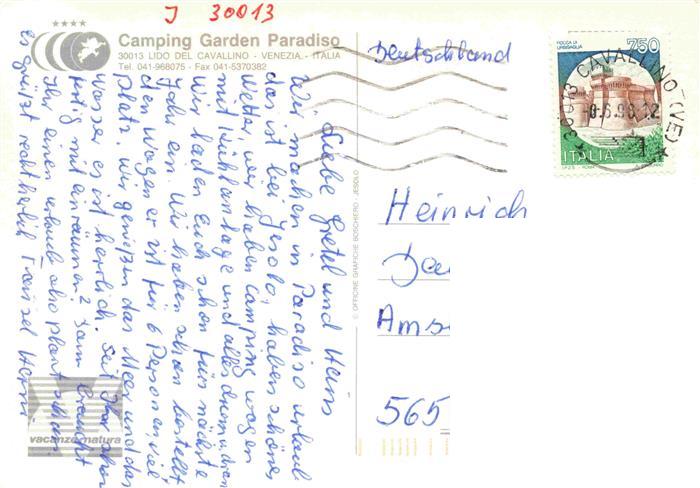 J 30013
Camping Garden Paradiso
30013 LIDO DEL CAVALLINO - VENEZIA - ITALIA
Tel. 041-968075 - Fax 041-5370382
Deutschland
ROCCA DI URBISAGLIA
750
ITALIA
30013 CAVALLINO (VE)
Liebe Gretel und Hans
Wir machen in Paradiso urlaub
das ist bei Jesolo, haben schönes
Wetter, wir haben Camping wagen
mit Kühlanlage und alles drum u. dran
Wir laden Euch schon fürs nächste
Jahr ein. Wir haben schon bestellt
den Wagen er ist für 6 Personen, viel
Platz. Wir genießen das Meer und das
Wasser es ist herrlich. Seit Ihr schon
fertig mit einräumen? Dann braucht
Ihr einen urlaub also plant schon.
Es grüßt recht herzlich
Heinrich
Ams
565
© OFFICINE GRAFICHE BOSCHIERO - JESOLO
vacanze natura